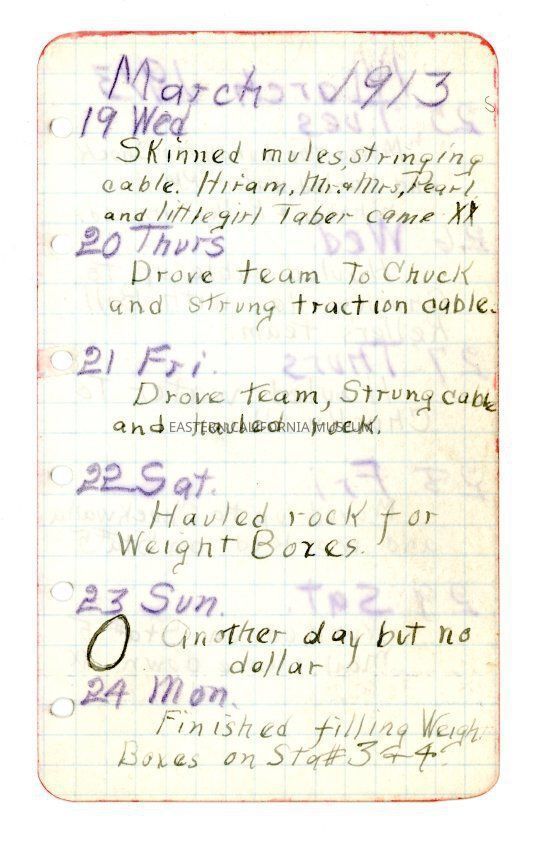 March 1913
19 Wed
Skinned mules, stringing
cable. Hiram, Mr. & Mrs, Pearl
and little girl Taber came XX
20 Thurs
Drove team To Chuck
and strung traction cable.
21 Fri.
Drove team, Strung cable
and hauled rock.
EASTERN CALIFORNIA MUSEUM
22 Sat.
Hauled rock for
Weight Boxes.
23 Sun.
0 Another day but no
dollar
24 Mon.
Finished filling Weight
Boxes on Sta# 3 & 4.